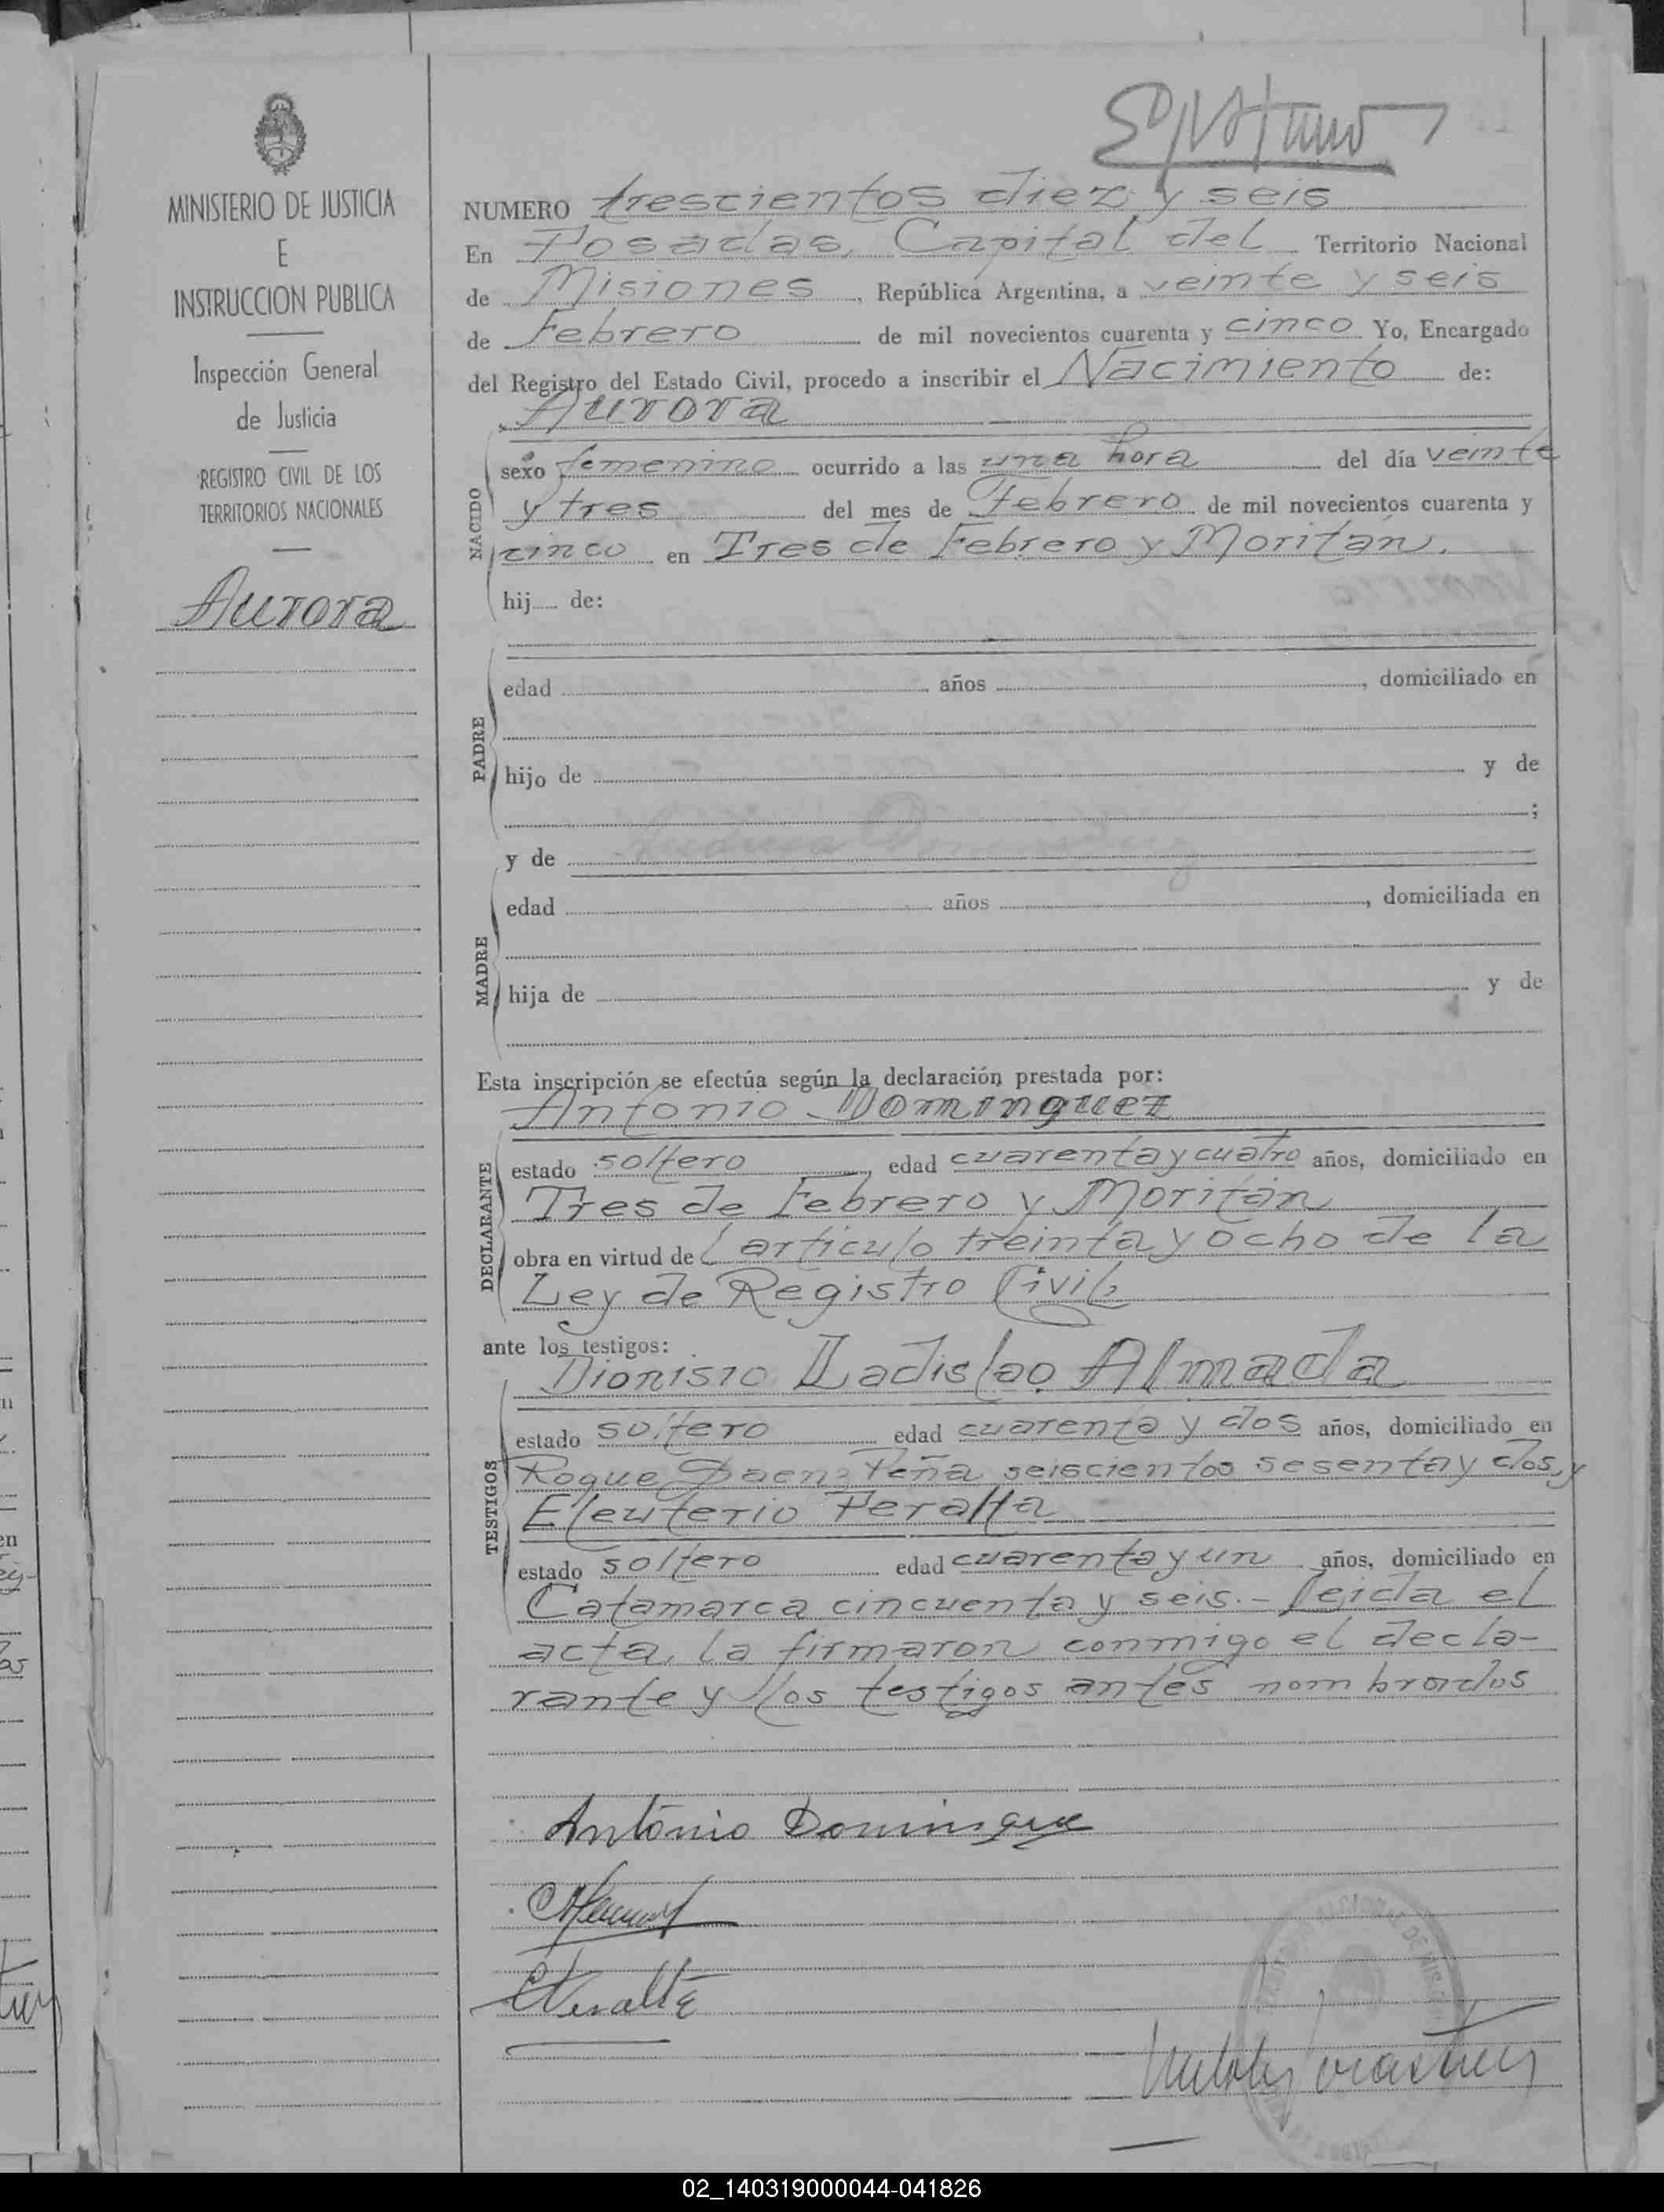 MINISTERIO DE JUSTICIA
E
INSTRUCCION PUBLICA
Inspección General
de Justicia
REGISTRO CIVIL DE LOS
TERRITORIOS NACIONALES
Aurora
NUMERO trescientos diez y seis
En Posadas, Capital del Territorio Nacional
de Misiones, República Argentina, a veinte y seis
de Febrero de mil novecientos cuarenta y cinco Yo, Encargado
del Registro del Estado Civil, procedo a inscribir el Nacimiento de:
Aurora
NACIDO
sexo femenino ocurrido a las una hora del día veinte
y tres del mes de Febrero de mil novecientos cuarenta y
cinco en Tres de Febrero y Moritán.
hij de:
PADRE
edad años , domiciliado en
hijo de y de
;
y de
MADRE
edad años , domiciliada en
hija de y de
Esta inscripción se efectúa según la declaración prestada por:
Antonio Dominguez
DECLARANTE
estado soltero, edad cuarenta y cuatro años, domiciliado en
Tres de Febrero y Moritán
obra en virtud del artículo treinta y ocho de la
Ley de Registro Civil
ante los testigos:
Dionisio Ladislao Almada
TESTIGOS
estado soltero edad cuarenta y dos años, domiciliado en
Roque Saenz Peña seiscientos sesenta y dos, y
Eleuterio Peralta
estado soltero edad cuarenta y un años, domiciliado en
Catamarca cincuenta y seis.- Leida el
acta, la firmaron conmigo el decla-
rante y los testigos antes nombrados
Antonio Dominguez
EPeralta
02_140319000044-041826